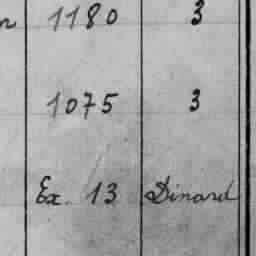 n 1180 3
1075 3
Ex. 13 Dinard